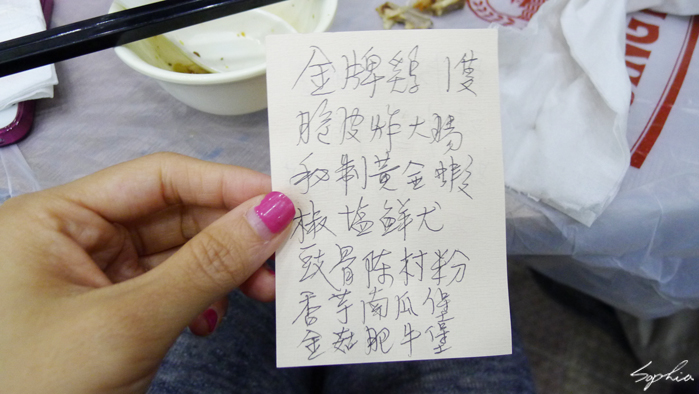 金牌雞 1隻
脆皮炸大腸
秘制黃金蝦
椒塩鮮尤
豉骨陳村粉
香芋南瓜堡
金菇肥牛堡
Sophia